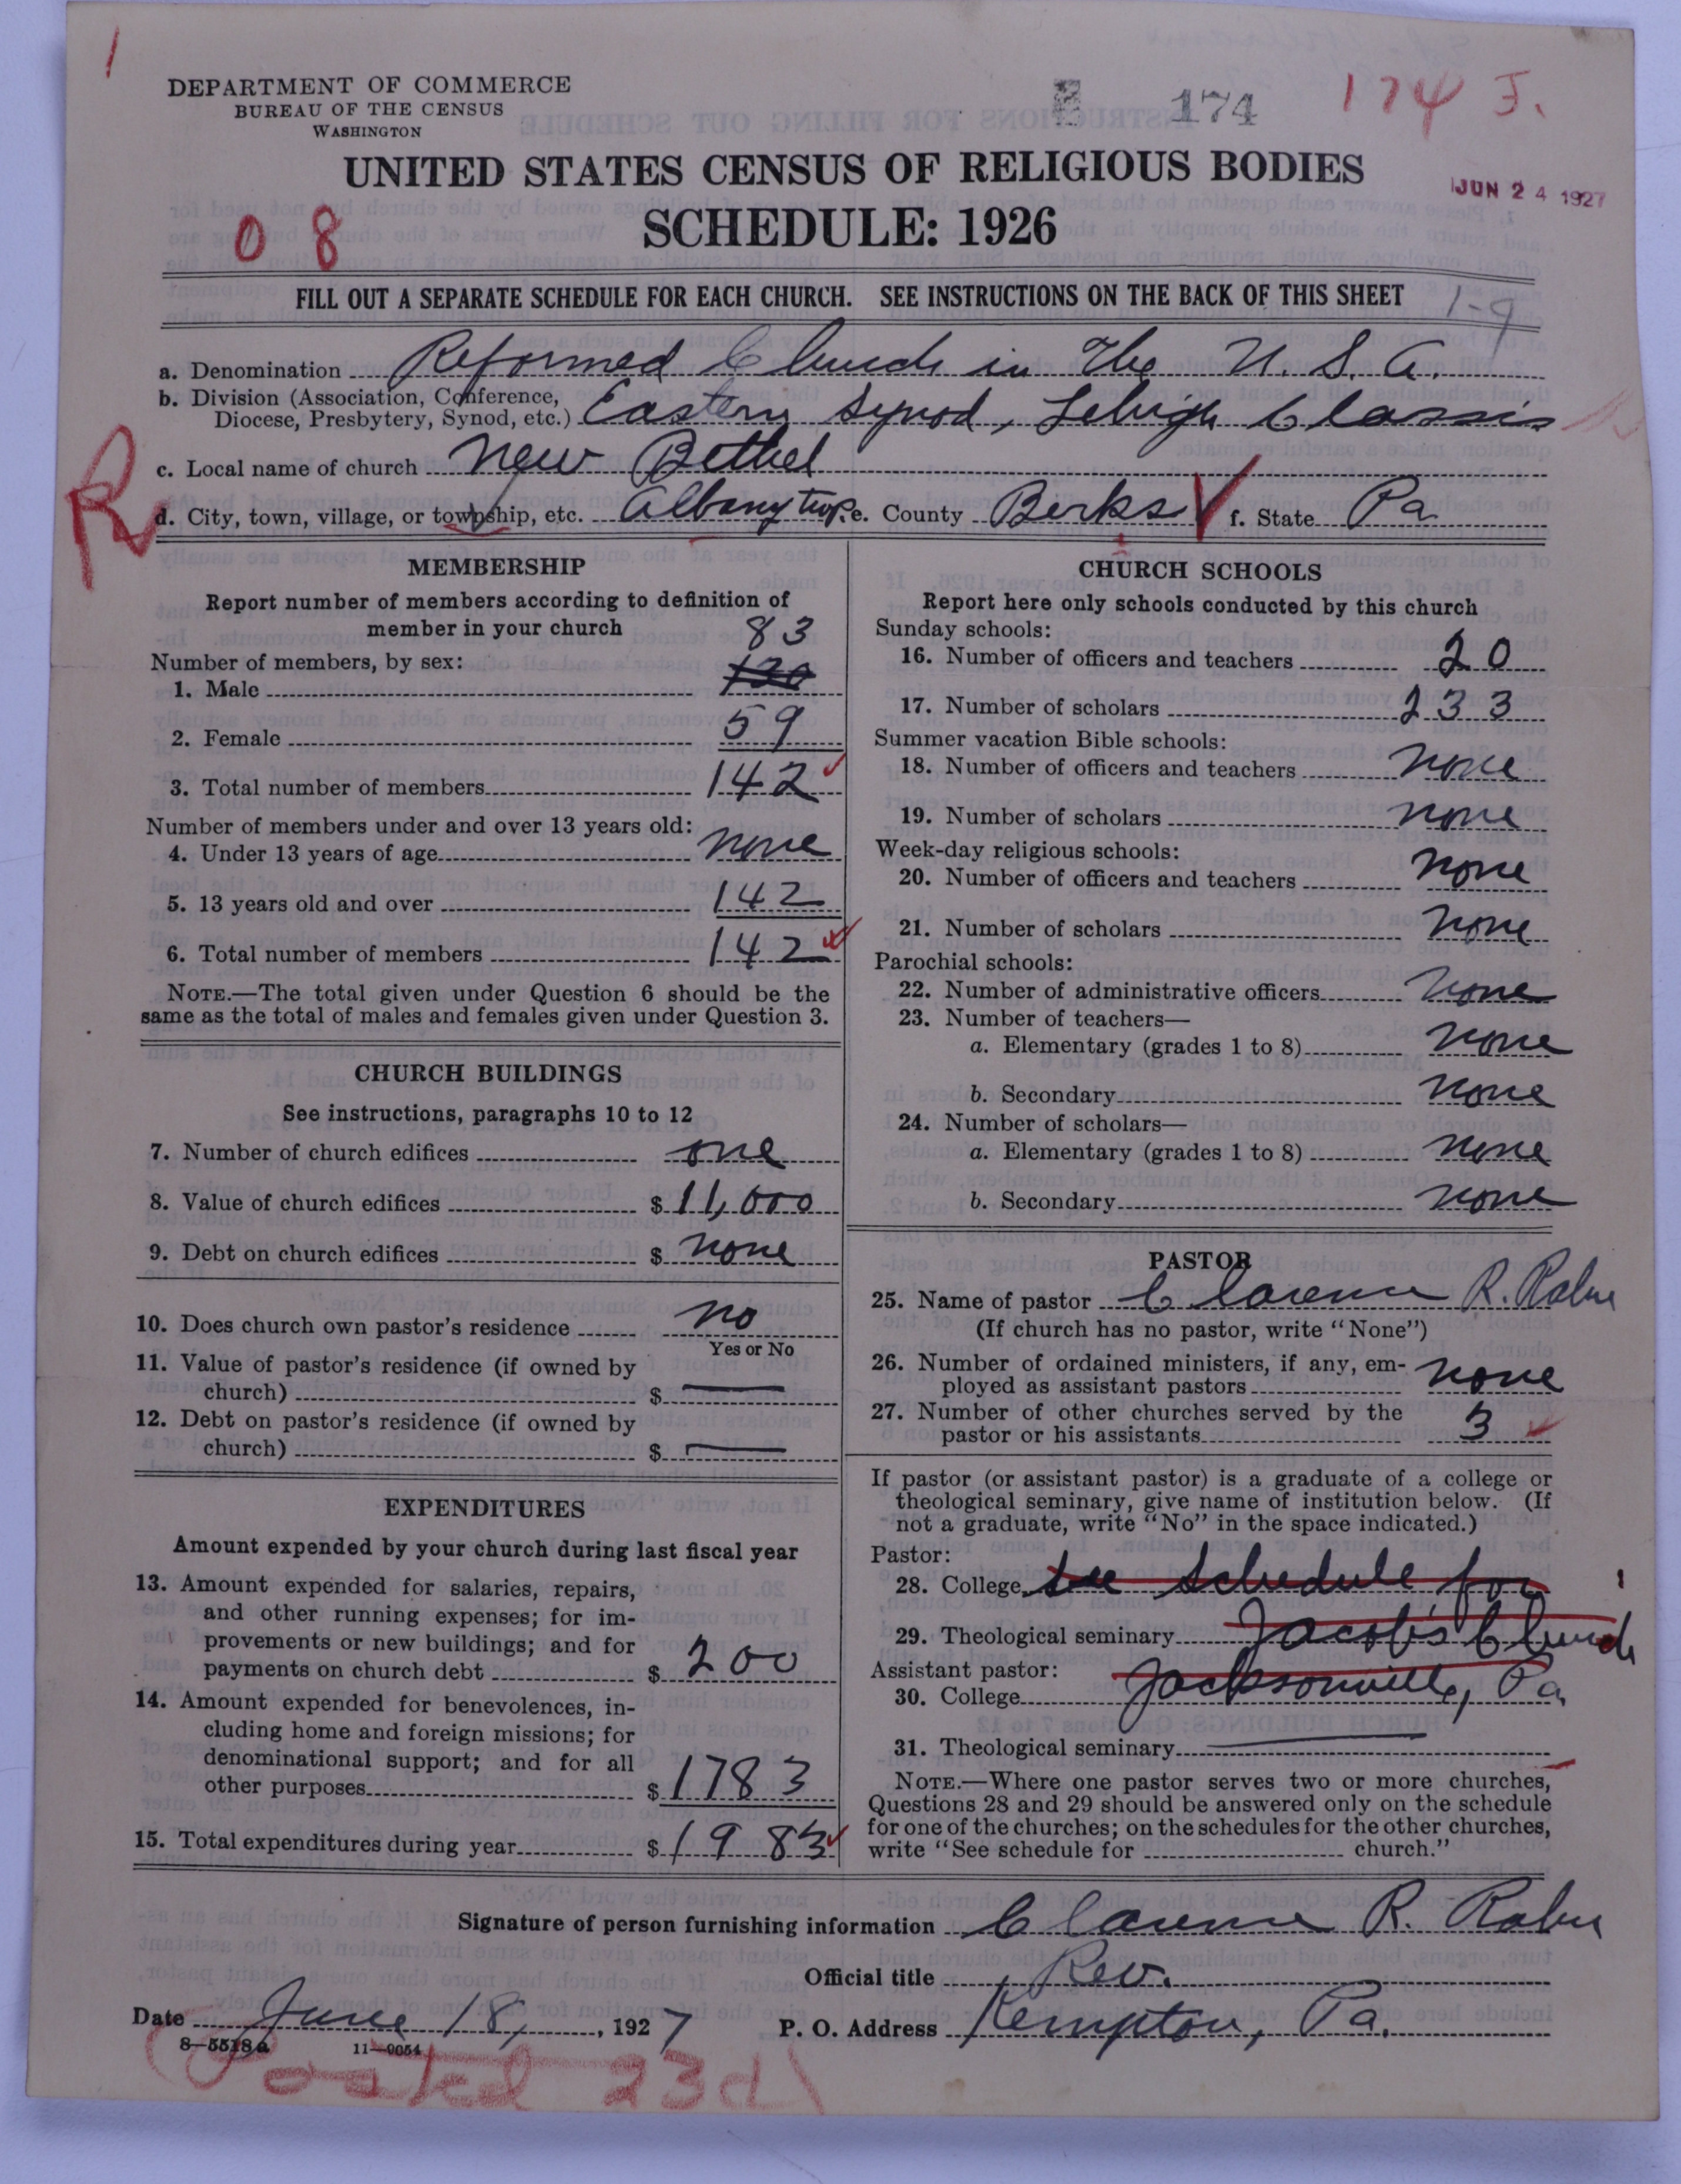 1
DEPARTMENT OF COMMERCE
BUREAU OF THE CENSUS
WASHINGTON
174
174 J.
UNITED STATES CENSUS OF RELIGIOUS BODIES
JUN 24 1927
SCHEDULE: 1926
0 8
FILL OUT A SEPARATE SCHEDULE FOR EACH CHURCH. SEE INSTRUCTIONS ON THE BACK OF THIS SHEET
1-9
a. Denomination Reformed Church in The U. S. A.
b. Division (Association, Conference,
Diocese, Presbytery, Synod, etc.) Eastern Synod, Lehigh Classis
c. Local name of church New Bethel
R
d. City, town, village, or township, etc. Albany twp. e. County Berks f. State Pa
MEMBERSHIP
Report number of members according to definition of
member in your church
83
Number of members, by sex:
1. Male 120
2. Female 59
3. Total number of members 142
Number of members under and over 13 years old:
4. Under 13 years of age none
5. 13 years old and over 142
6. Total number of members 142
NOTE.—The total given under Question 6 should be the
same as the total of males and females given under Question 3.
CHURCH BUILDINGS
See instructions, paragraphs 10 to 12
7. Number of church edifices one
8. Value of church edifices $ 11,000
9. Debt on church edifices $ none
10. Does church own pastor's residence no
Yes or No
11. Value of pastor's residence (if owned by
church) $ —
12. Debt on pastor's residence (if owned by
church) $ —
EXPENDITURES
Amount expended by your church during last fiscal year
13. Amount expended for salaries, repairs,
and other running expenses; for im-
provements or new buildings; and for
payments on church debt $ 200
14. Amount expended for benevolences, in-
cluding home and foreign missions; for
denominational support; and for all
other purposes $ 1783
15. Total expenditures during year $ 1983
CHURCH SCHOOLS
Report here only schools conducted by this church
Sunday schools:
16. Number of officers and teachers 20
17. Number of scholars 233
Summer vacation Bible schools:
18. Number of officers and teachers none
19. Number of scholars none
Week-day religious schools:
20. Number of officers and teachers none
21. Number of scholars none
Parochial schools:
22. Number of administrative officers none
23. Number of teachers—
a. Elementary (grades 1 to 8) none
b. Secondary none
24. Number of scholars—
a. Elementary (grades 1 to 8) none
b. Secondary none
PASTOR
25. Name of pastor Clarence R. Rahn
(If church has no pastor, write "None")
26. Number of ordained ministers, if any, em-
ployed as assistant pastors none
27. Number of other churches served by the
pastor or his assistants 3
If pastor (or assistant pastor) is a graduate of a college or
theological seminary, give name of institution below. (If
not a graduate, write "No" in the space indicated.)
Pastor:
28. College see schedule for
29. Theological seminary Jacob's Church
Assistant pastor:
30. College Jacksonville, Pa,
31. Theological seminary —
NOTE.—Where one pastor serves two or more churches,
Questions 28 and 29 should be answered only on the schedule
for one of the churches; on the schedules for the other churches,
write "See schedule for church."
Signature of person furnishing information Clarence R. Rahn
Official title Rev.
Date June 18, 1927 P. O. Address Kempton, Pa.
8-5518a 11-9054